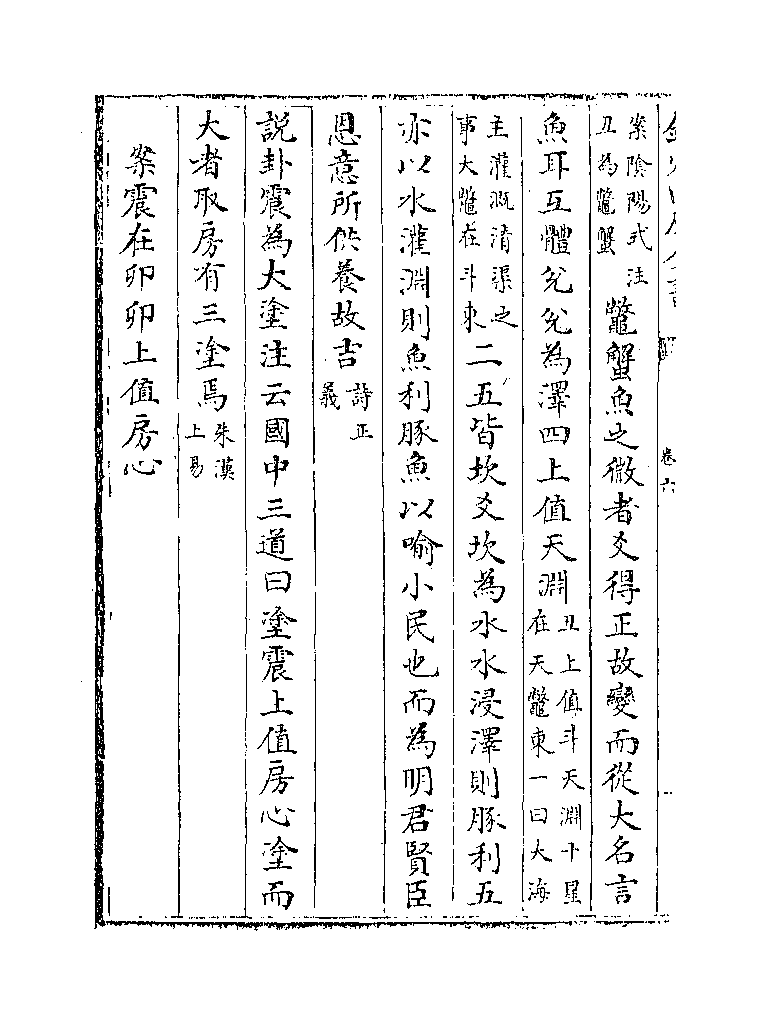 卷六
案陰陽式注
丑為鼈蟹
鼈蟹魚之微者爻得正故變而從大名言
魚耳互體兌兌為澤四上值天淵
丑上值斗天淵十星
在天鼈東一曰大海
主灌溉清渠之
事大鼈在斗東
二五皆坎爻坎為水水浸澤則豚利五
亦以水灌淵則魚利豚魚以喻小民也而為明君賢臣
恩意所供養故吉
詩正
義
説卦震為大塗注云國中三道曰塗震上值房心塗而
大者取房有三塗焉
朱漢
上易
案震在卯卯上值房心